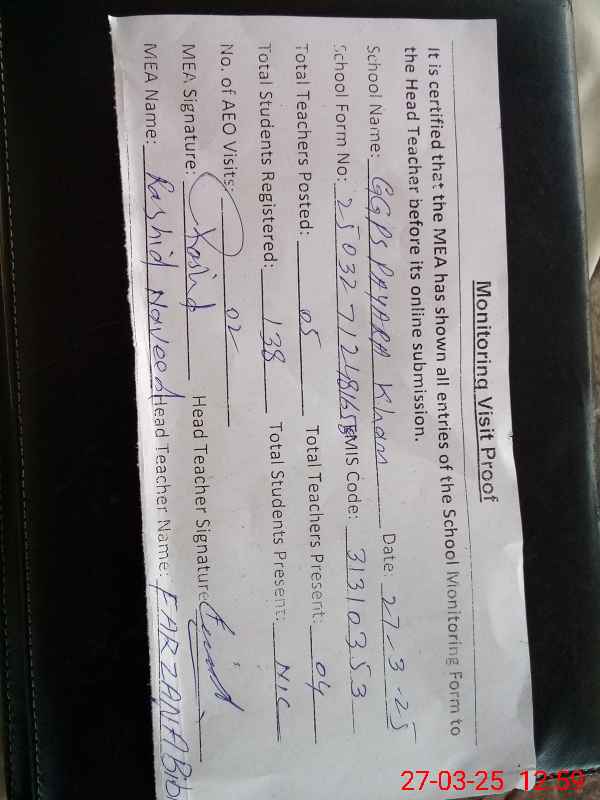 Monitoring Visit Proof
It is certified that the MEA has shown all entries of the School Monitoring Form to
the Head Teacher before its online submission.
School Name: GGPS PAYARA Khan Date: 27-3-25
School Form No: EMIS Code: 31310353
Total Teachers Posted: 05 Total Teachers Present: 04
Total Students Registered: 138 Total Students Present: NIC
No. of AEO Visits: 02
MEA Signature: Rashid Head Teacher Signature
MEA Name: Rashid Naveed Head Teacher Name: FARZANA Bibi
27-03-25 12:59